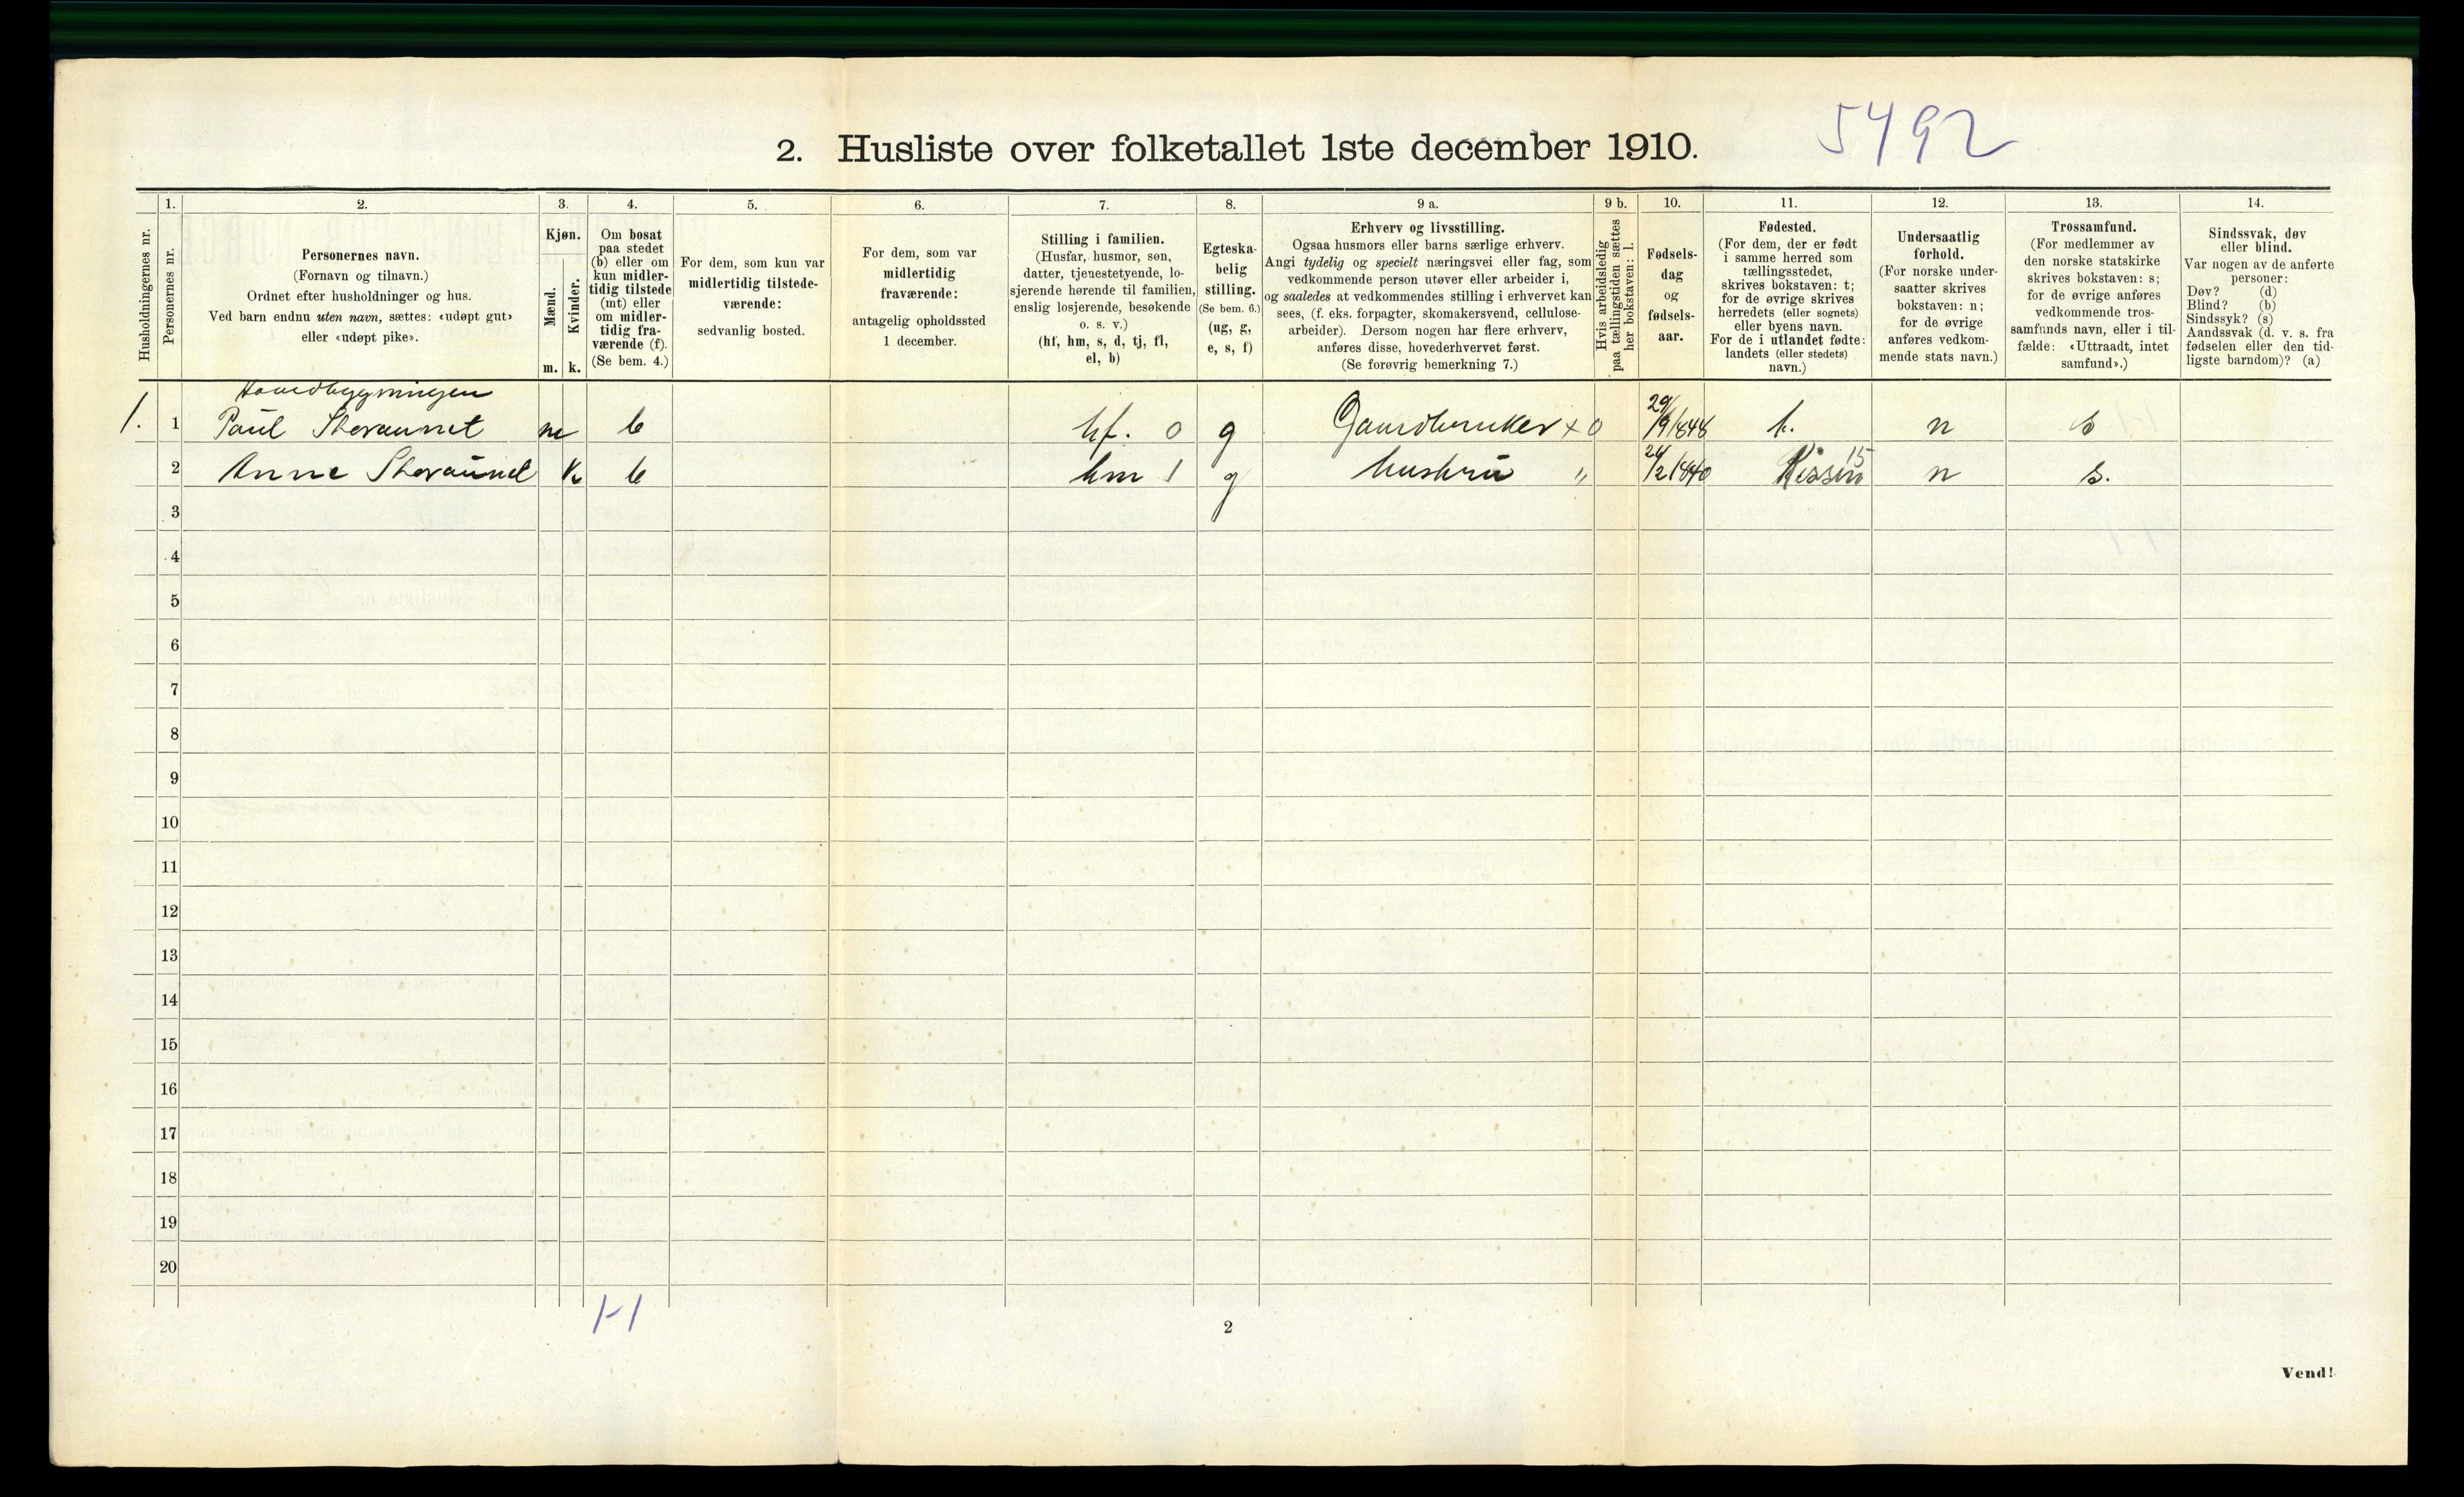 5492
2. Husliste over folketallet 1ste december 1910.
Husholdningernes nr.
1.
Personernes nr.
2.
Personernes navn.
(Fornavn og tilnavn.)
Ordnet efter husholdninger og hus.
Ved barn endnu uten navn, sættes: «udøpt gut»
eller «udøpt pike».
3.
Kjøn.
Mænd.
Kvinder.
m. k.
4.
Om bosat
paa stedet
(b) eller om
kun midler-
tidig tilstede
(mt) eller
om midler-
tidig fra-
værende (f).
(Se bem. 4.)
5.
For dem, som kun var
midlertidig tilstede-
værende:
sedvanlig bosted.
6.
For dem, som var
midlertidig
fraværende:
antagelig opholdssted
1 december.
7.
Stilling i familien.
(Husfar, husmor, søn,
datter, tjenestetyende, lo-
sjerende hørende til familien,
enslig losjerende, besøkende
o. s. v.)
(hf, hm, s, d, tj, fl,
el, b)
8.
Egteska-
belig
stilling.
(Se bem. 6.)
(ug, g,
e, s, f)
9 a.
Erhverv og livsstilling.
Ogsaa husmors eller barns særlige erhverv.
Angi tydelig og specielt næringsvei eller fag, som
vedkommende person utøver eller arbeider i,
og saaledes at vedkommendes stilling i erhvervet kan
sees, (f. eks. forpagter, skomakersvend, cellulose-
arbeider). Dersom nogen har flere erhverv,
anføres disse, hovederhvervet først.
(Se forøvrig bemerkning 7.)
9 b.
Hvis arbeidsledig
paa tællingstiden sættes
her bokstaven: l.
10.
Fødsels-
dag
og
fødsels-
aar.
11.
Fødested.
(For dem, der er født
i samme herred som
tællingsstedet,
skrives bokstaven: t;
for de øvrige skrives
herredets (eller sognets)
eller byens navn.
For de i utlandet fødte:
landets (eller stedets)
navn.)
12.
Undersaatlig
forhold.
(For norske under-
saatter skrives
bokstaven: n;
for de øvrige
anføres vedkom-
mende stats navn.)
13.
Trossamfund.
(For medlemmer av
den norske statskirke
skrives bokstaven: s;
for de øvrige anføres
vedkommende tros-
samfunds navn, eller i til-
fælde: «Uttraadt, intet
samfund».)
14.
Sindssvak, døv
eller blind.
Var nogen av de anførte
personer:
Døv? (d)
Blind? (b)
Sindssyk? (s)
Aandssvak (d. v. s. fra
fødselen eller den tid-
ligste barndom)? (a)
Hovedbygningen
1. 1 Paul m b hf. 0 g Gaardbruker x 0 29/9 1848 t. n s
2 Anne k b hm 1 g hustru " /2 1840 Rissen 15 n s.
3
4
5
6
7
8
9
10
11
12
13
14
15
16
17
18
19
20
1-1
2
Vend!